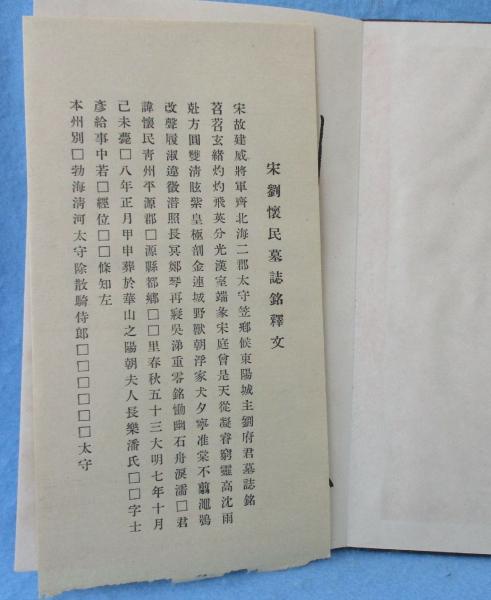 宋劉懷民墓誌銘釋文
宋故建威將軍齊北海二郡太守笠鄉候東陽城主劉府君墓誌銘
苕苕玄緒灼灼飛英分光漢室端彖宋庭曾是天從凝睿窮靈高沈雨
兙方圓雙清眩紫皇極剖金連城野獸朝浮家犬夕寧准棠不翦澠鴞
改聲履淑違徵潛照長冥鄭琴再寢吳涕重零銘慟幽石舟淚濡□君
諱懷民青州平源郡□源縣都鄉□□里春秋五十三大明七年十月
己未薨□八年正月甲申葬於華山之陽朝夫人長樂潘氏□□字士
彥給事中若□經位□□條知左
本州別□勃海清河太守除散騎侍郎□□□□□□太守